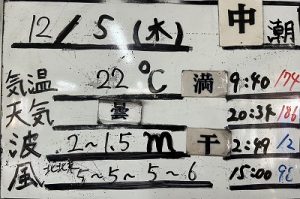 12/5(水) 中 潮
気温 22℃ 満 9:40 174
天気 曇 20:34 186
波 2~1.5m 干 2:49 12
風 北北東 5~5~5~6 15:00 98